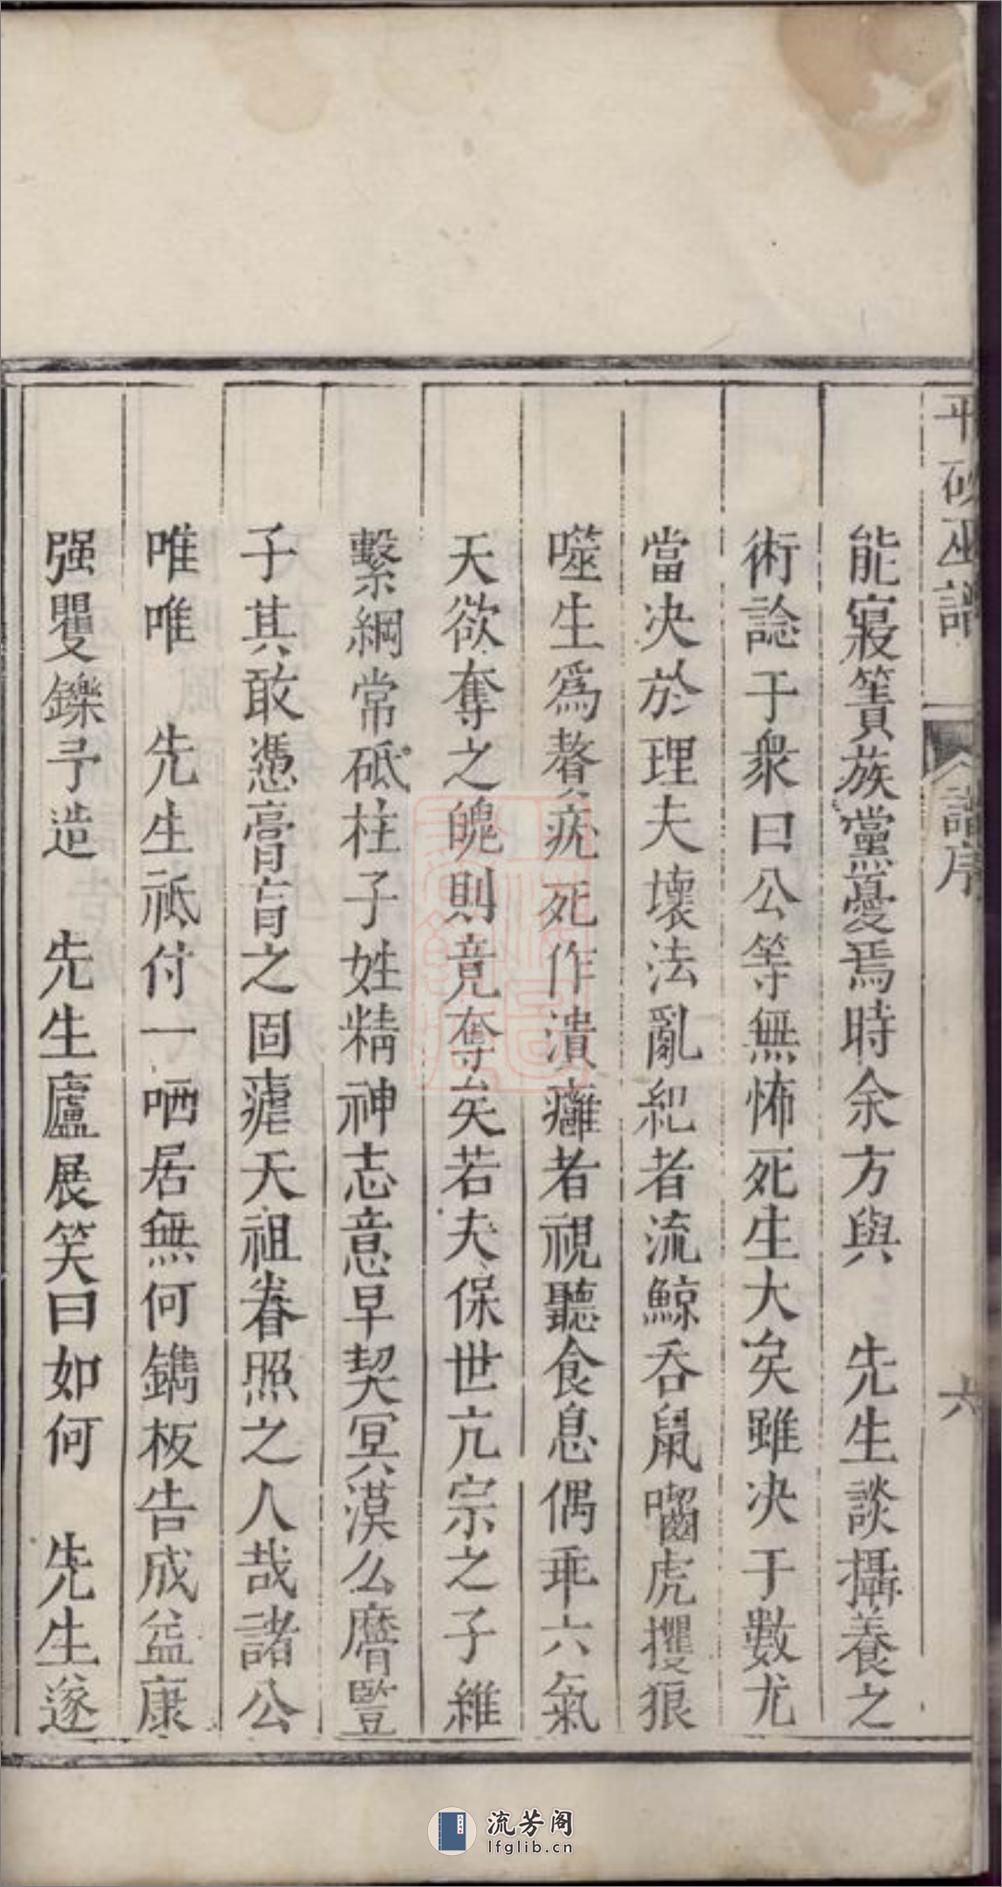 能寢簀族黨憂焉時余方與　先生談攝養之
術諗于衆曰公等無怖死生大矣雖决于數尤
當决於理夫壞法亂紀者流鯨吞鼠嚙虎攫狼
噬生爲贅疣死作潰癰者視聽食息偶乖六氣
天欲奪之魄則竟奪矣若夫保世亢宗之子維
繫綱常砥柱子姓精神志意早契冥漠么麿豎
子其敢憑膏肓之固瘧天祖眷照之人哉諸公
唯唯　先生祇付一哂居無何鐫板告成益康
强矍鑠予造　先生廬展笑曰如何　先生遂
譜序
六
流芳阁
lfglib.cn